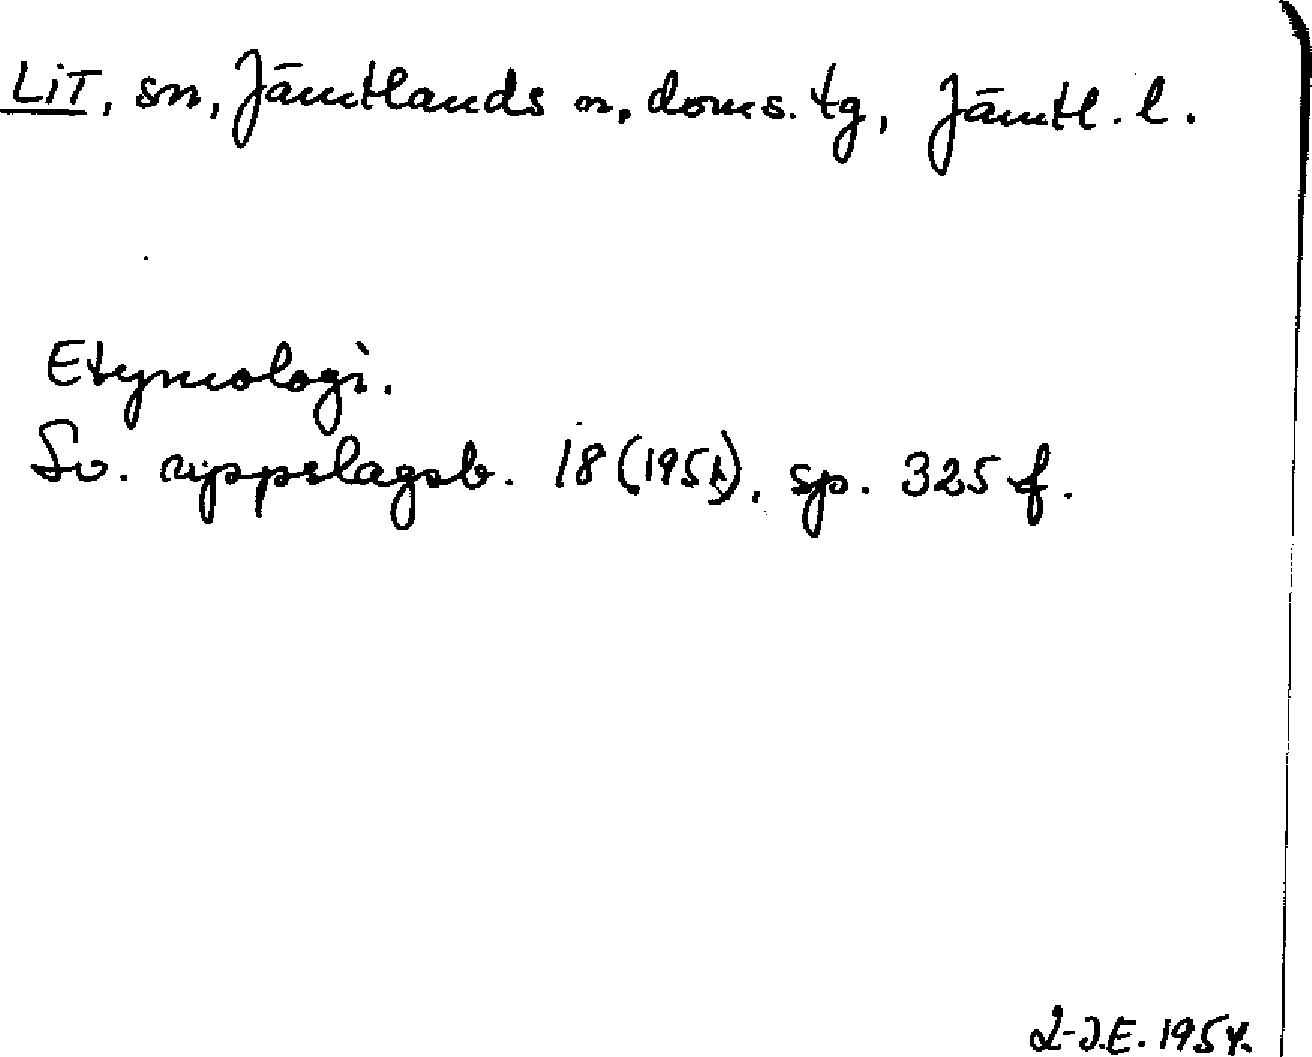 LiT, sn, Jämtlands n. doms. tg, Jämtl. l.
Etymologi.
Sv. uppslagsb. 18 (1951), sp. 325 f.
L-J.E. 1954.